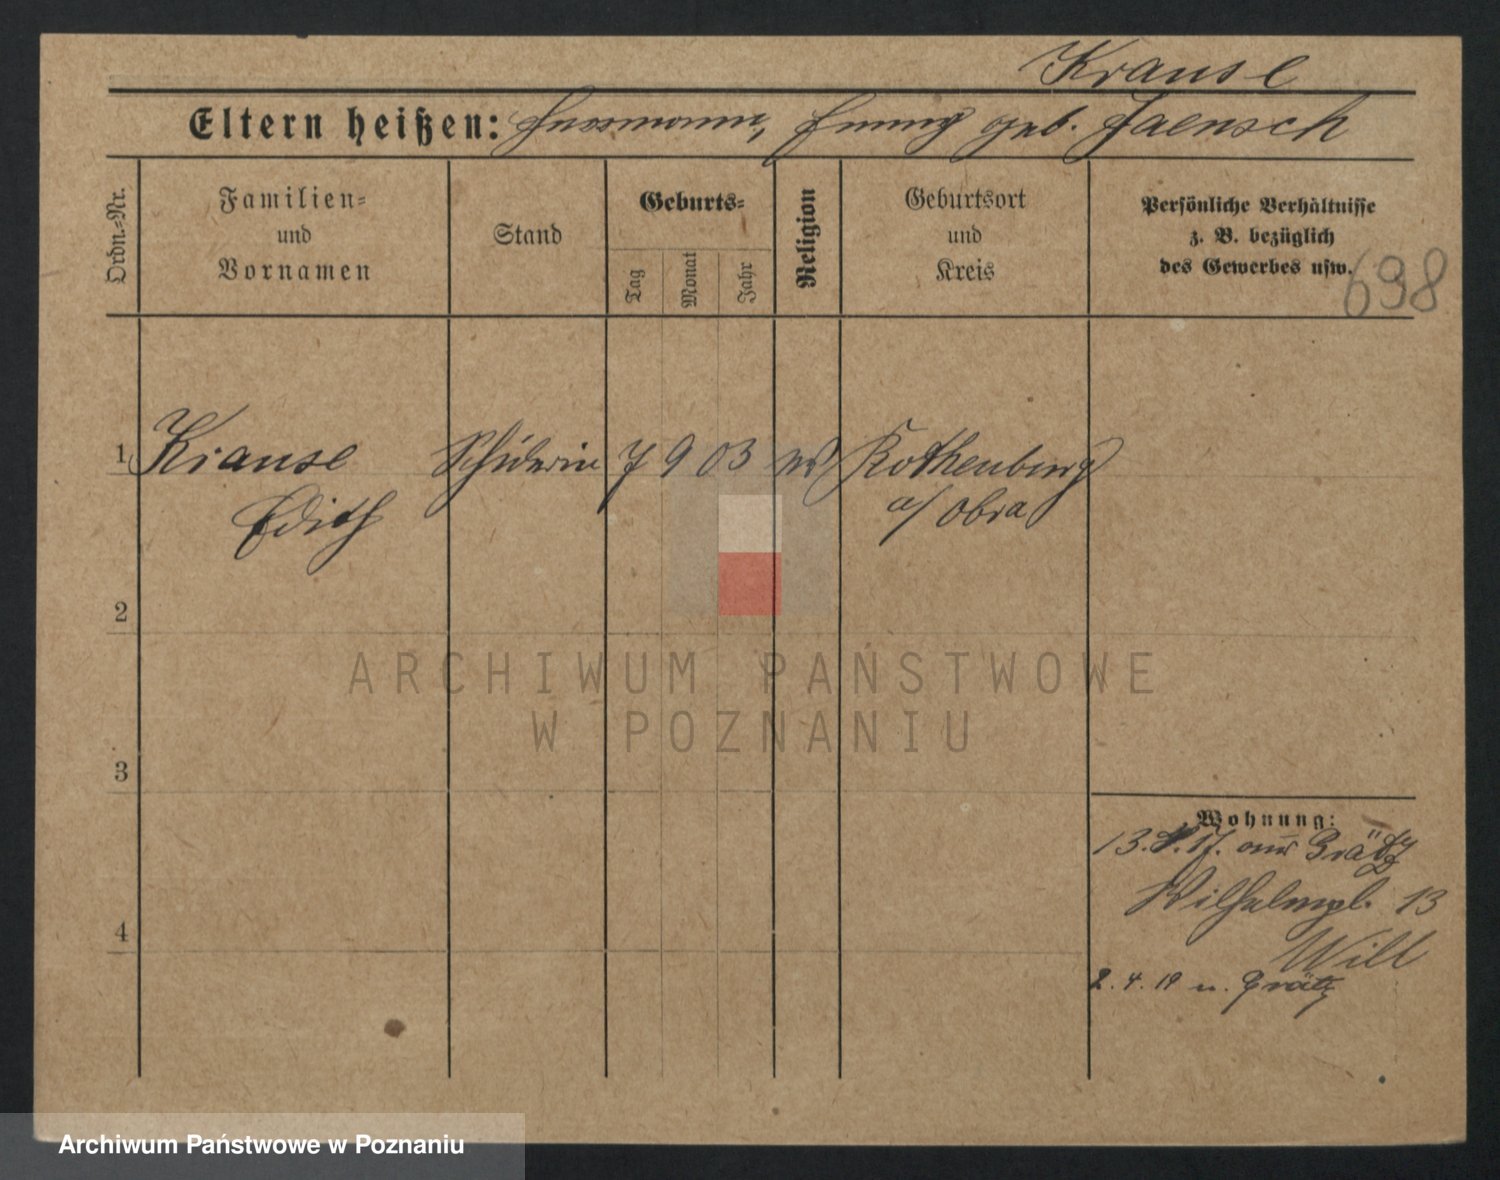 Krause
Eltern heißen: Hermann, Emmy geb. Jaensch
Ordn.-Nr.
Familien-
und
Vornamen
Stand
Geburts-
Tag
Monat
Jahr
Religion
Geburtsort
und
Kreis
Persönliche Verhältnisse
z. B. bezüglich
des Gewerbes usw.
698
1 Krause Schülerin 7 9 03 ev Rothenburg
Edith a/ Obra
2
3
4
Wohnung:
13. 17. aus Grätz
Wilhelmpl. 13
Will
2. 4. 19 n. Grätz
ARCHIWUM PAŃSTWOWE
W POZNANIU
Archiwum Państwowe w Poznaniu